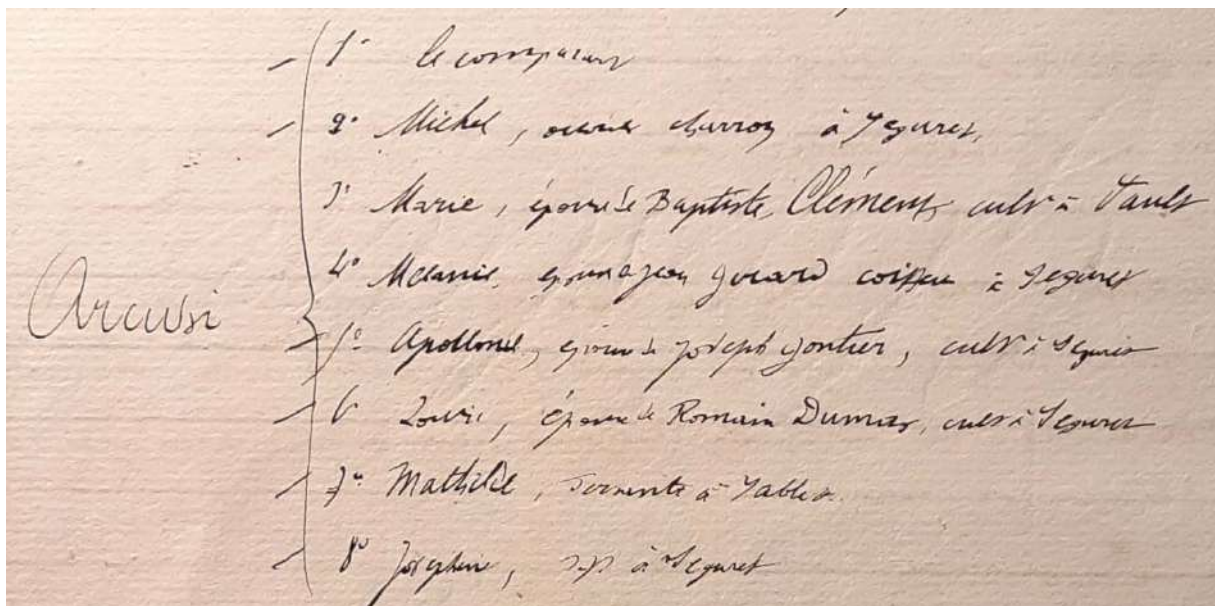 1° le comparant
2° Michel, ouvrier charron à Séguret,
3° Marie, épouse de Baptiste Clément, cultr à
4° Mélanie, épouse de Jean Girard coiffeur à Séguret
Arcusi
5° Apollonie, épouse de Joseph Gontier, cultr à Séguret
6° Louise, épouse de Romain Dumas, cultr à Séguret
7° Mathilde, servante à Sablet.
8° Joséphine, s.p. à Séguret